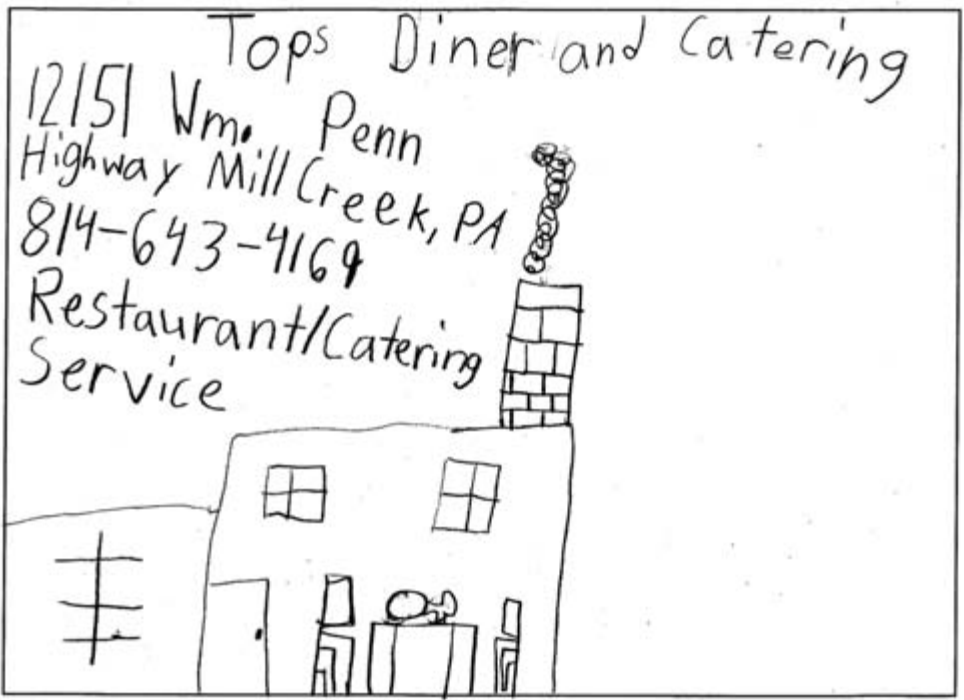 Tops Diner and Catering
12151 Wm. Penn
Highway Mill Creek, PA
814-643-4169
Restaurant/Catering
Service